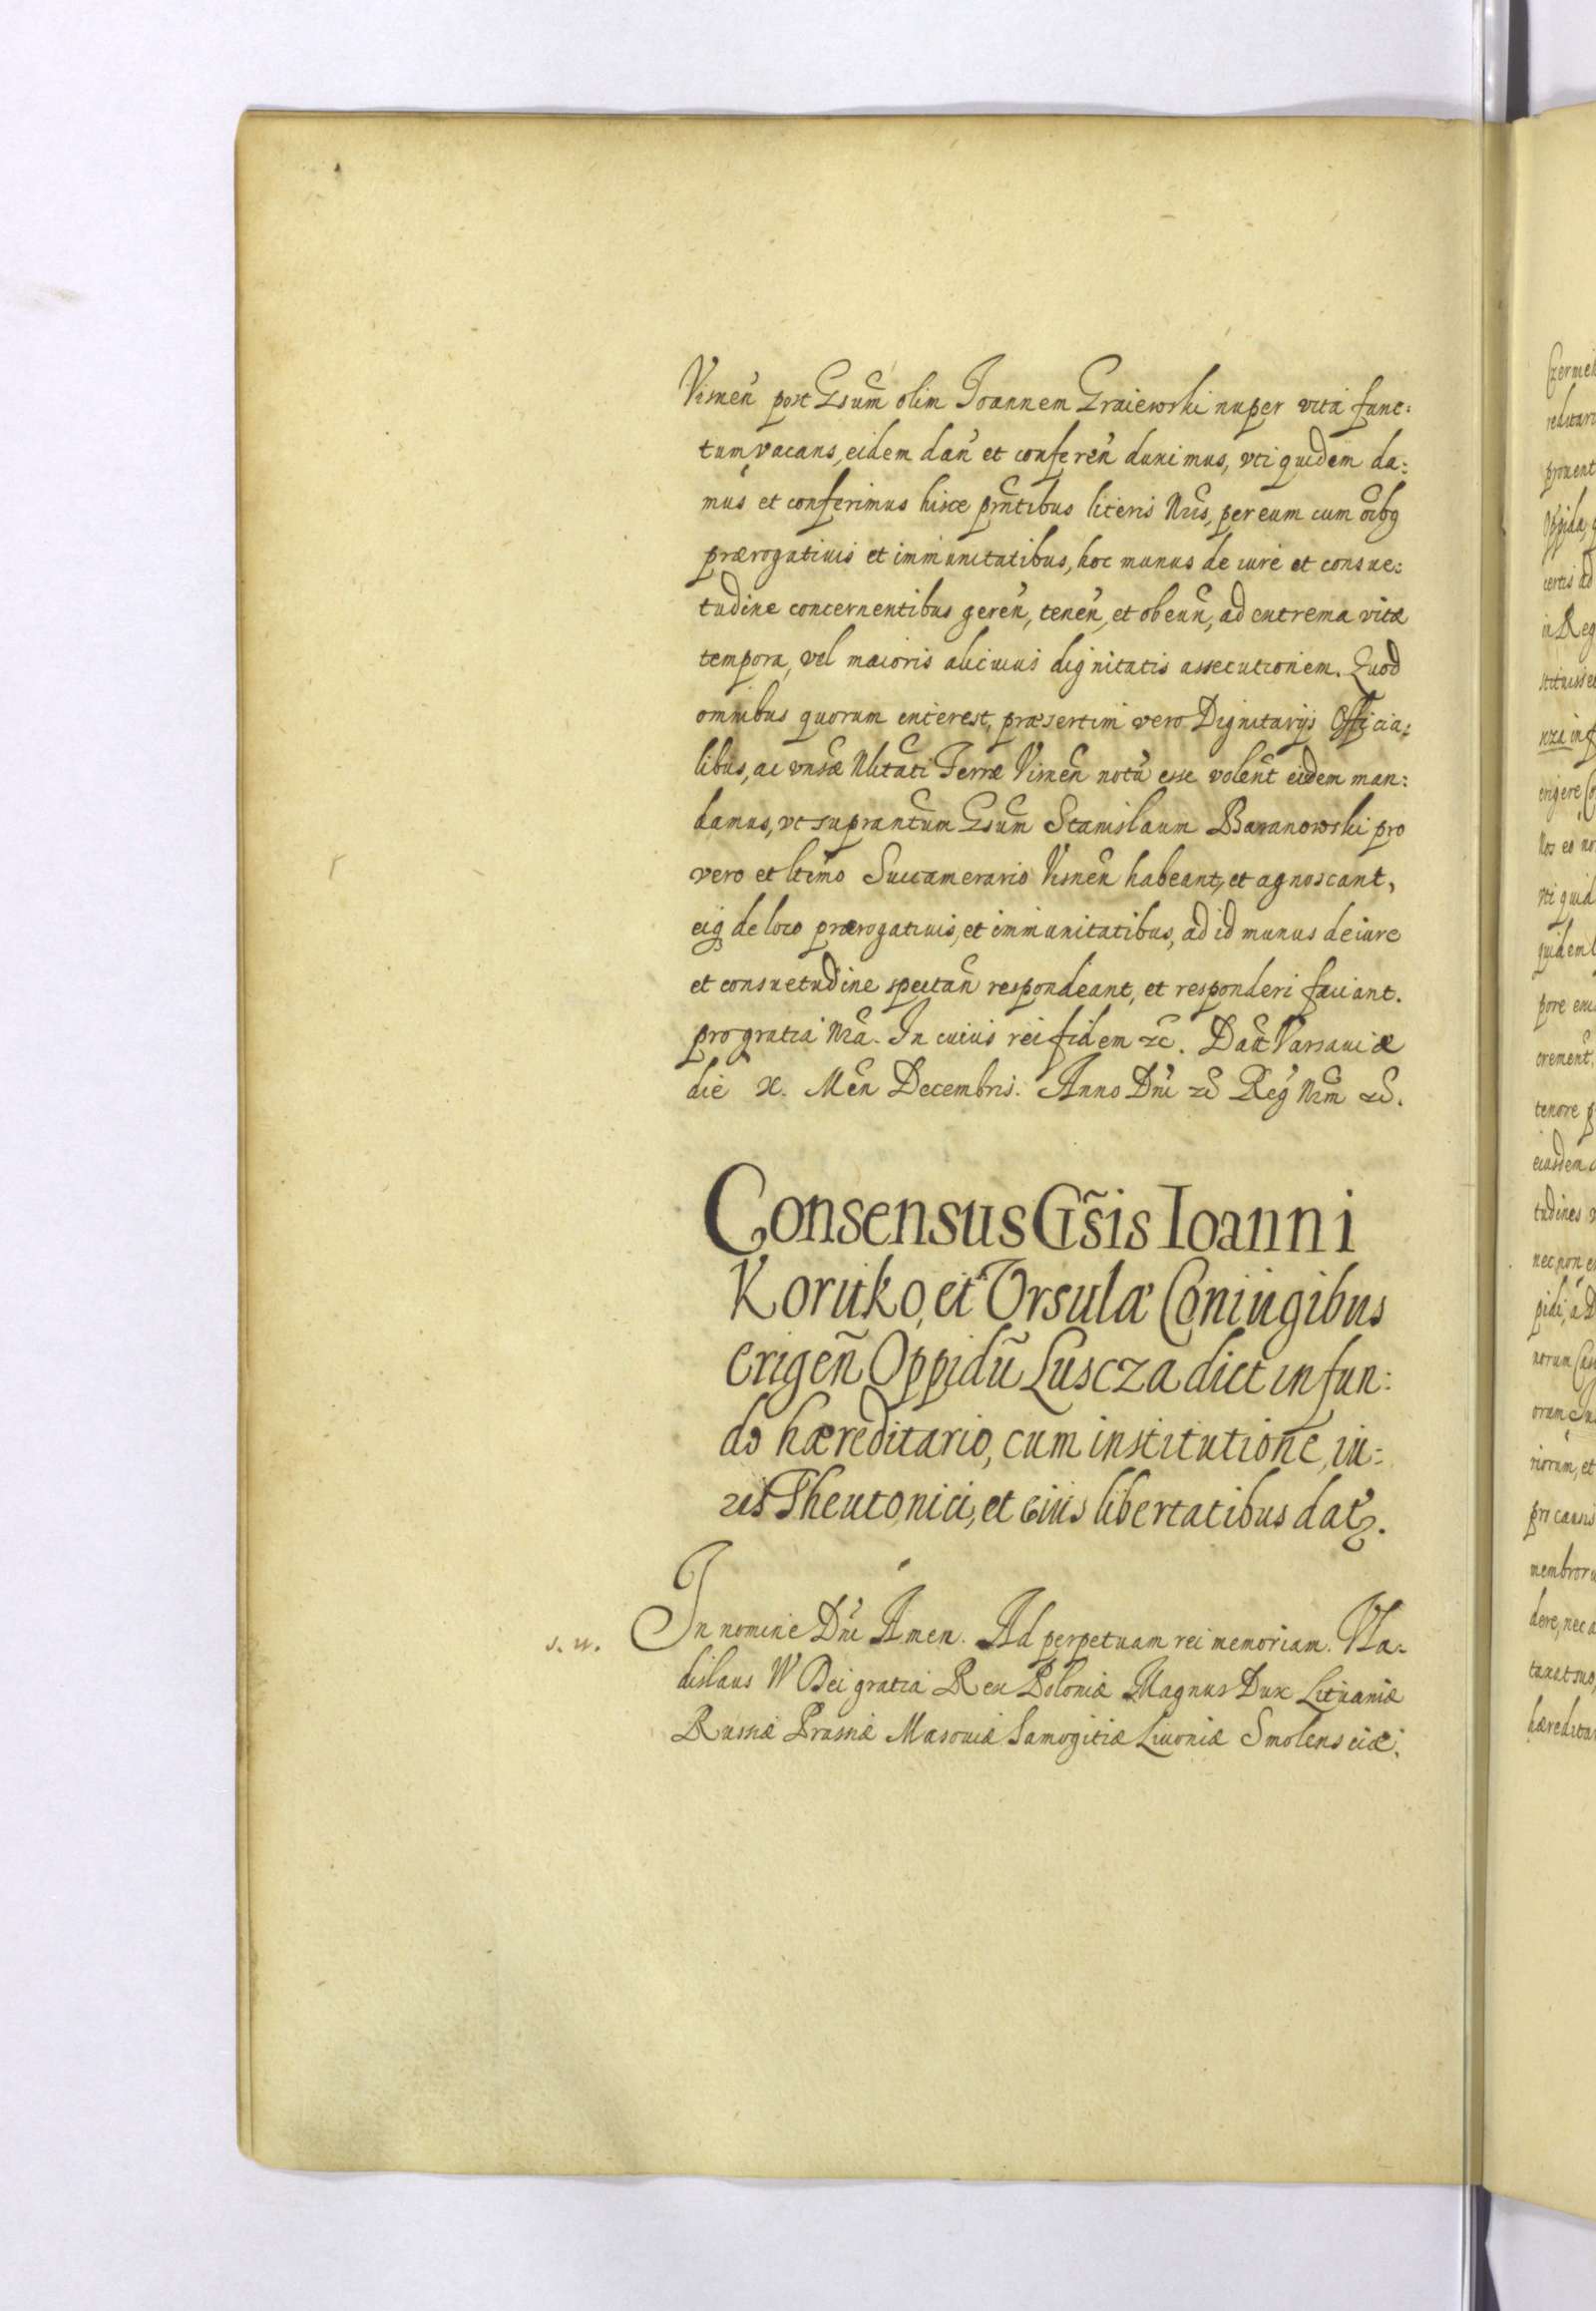 Visneñ post Gsum̃ olim Joannem Graiewski nuper vita func:
tum vacans, eidem dañ et confereñ duximus, vti quidem da:
mus et conferimus hisce prñtibus literis Nris, per eum cum oĩbq
prærogatiuis et immunitatibus, hoc munus de iure et consue:
tudine concernentibus gereñ, teneñ, et obeuñ, ad extrema vitæ
tempora, vel maioris alicuius dignitatis assecutionem. Quod
omnibus quorum interest, præsertim vero Dignitarijs Officia:
libus, ac vnsæ Nlitati Terræ Visneñ notũ esse voleñt eidem man:
damus, vt supranc̃tum Gsum̃ Stanislaum Baranowski pro
vero et ltimo Succamerario Visneñ habeant, et agnoscant,
eiq3 de loco prærogatiuis, et immunitatibus, ad id munus de iure
et consuetudine spectañ respondeant, et responderi faciant.
pro gratia Nra. In cuius rei fidem &c. Dat Varsauiæ
die X. Meñ Decembris. Anno Dñi &c Reg Nrm̃ &c.
Consensus Gs̃is Ioanni
Korutko, et Vrsulæ Coniugibus
erigeñ Oppidũ Luscza dict in fun:
do hæreditario, cum institutione, iu:
ris Theutonici, et eius libertatibus dat3.
s. n. In nomine Dñi Amen. Ad perpetuam rei memoriam. Vla:
dislaus IV Dei gratia Rex Poloniæ Magnus Dux Lituaniæ
Russiæ Prussiæ Masouiæ Samogitiæ Liuoniæ Smolensciæ: